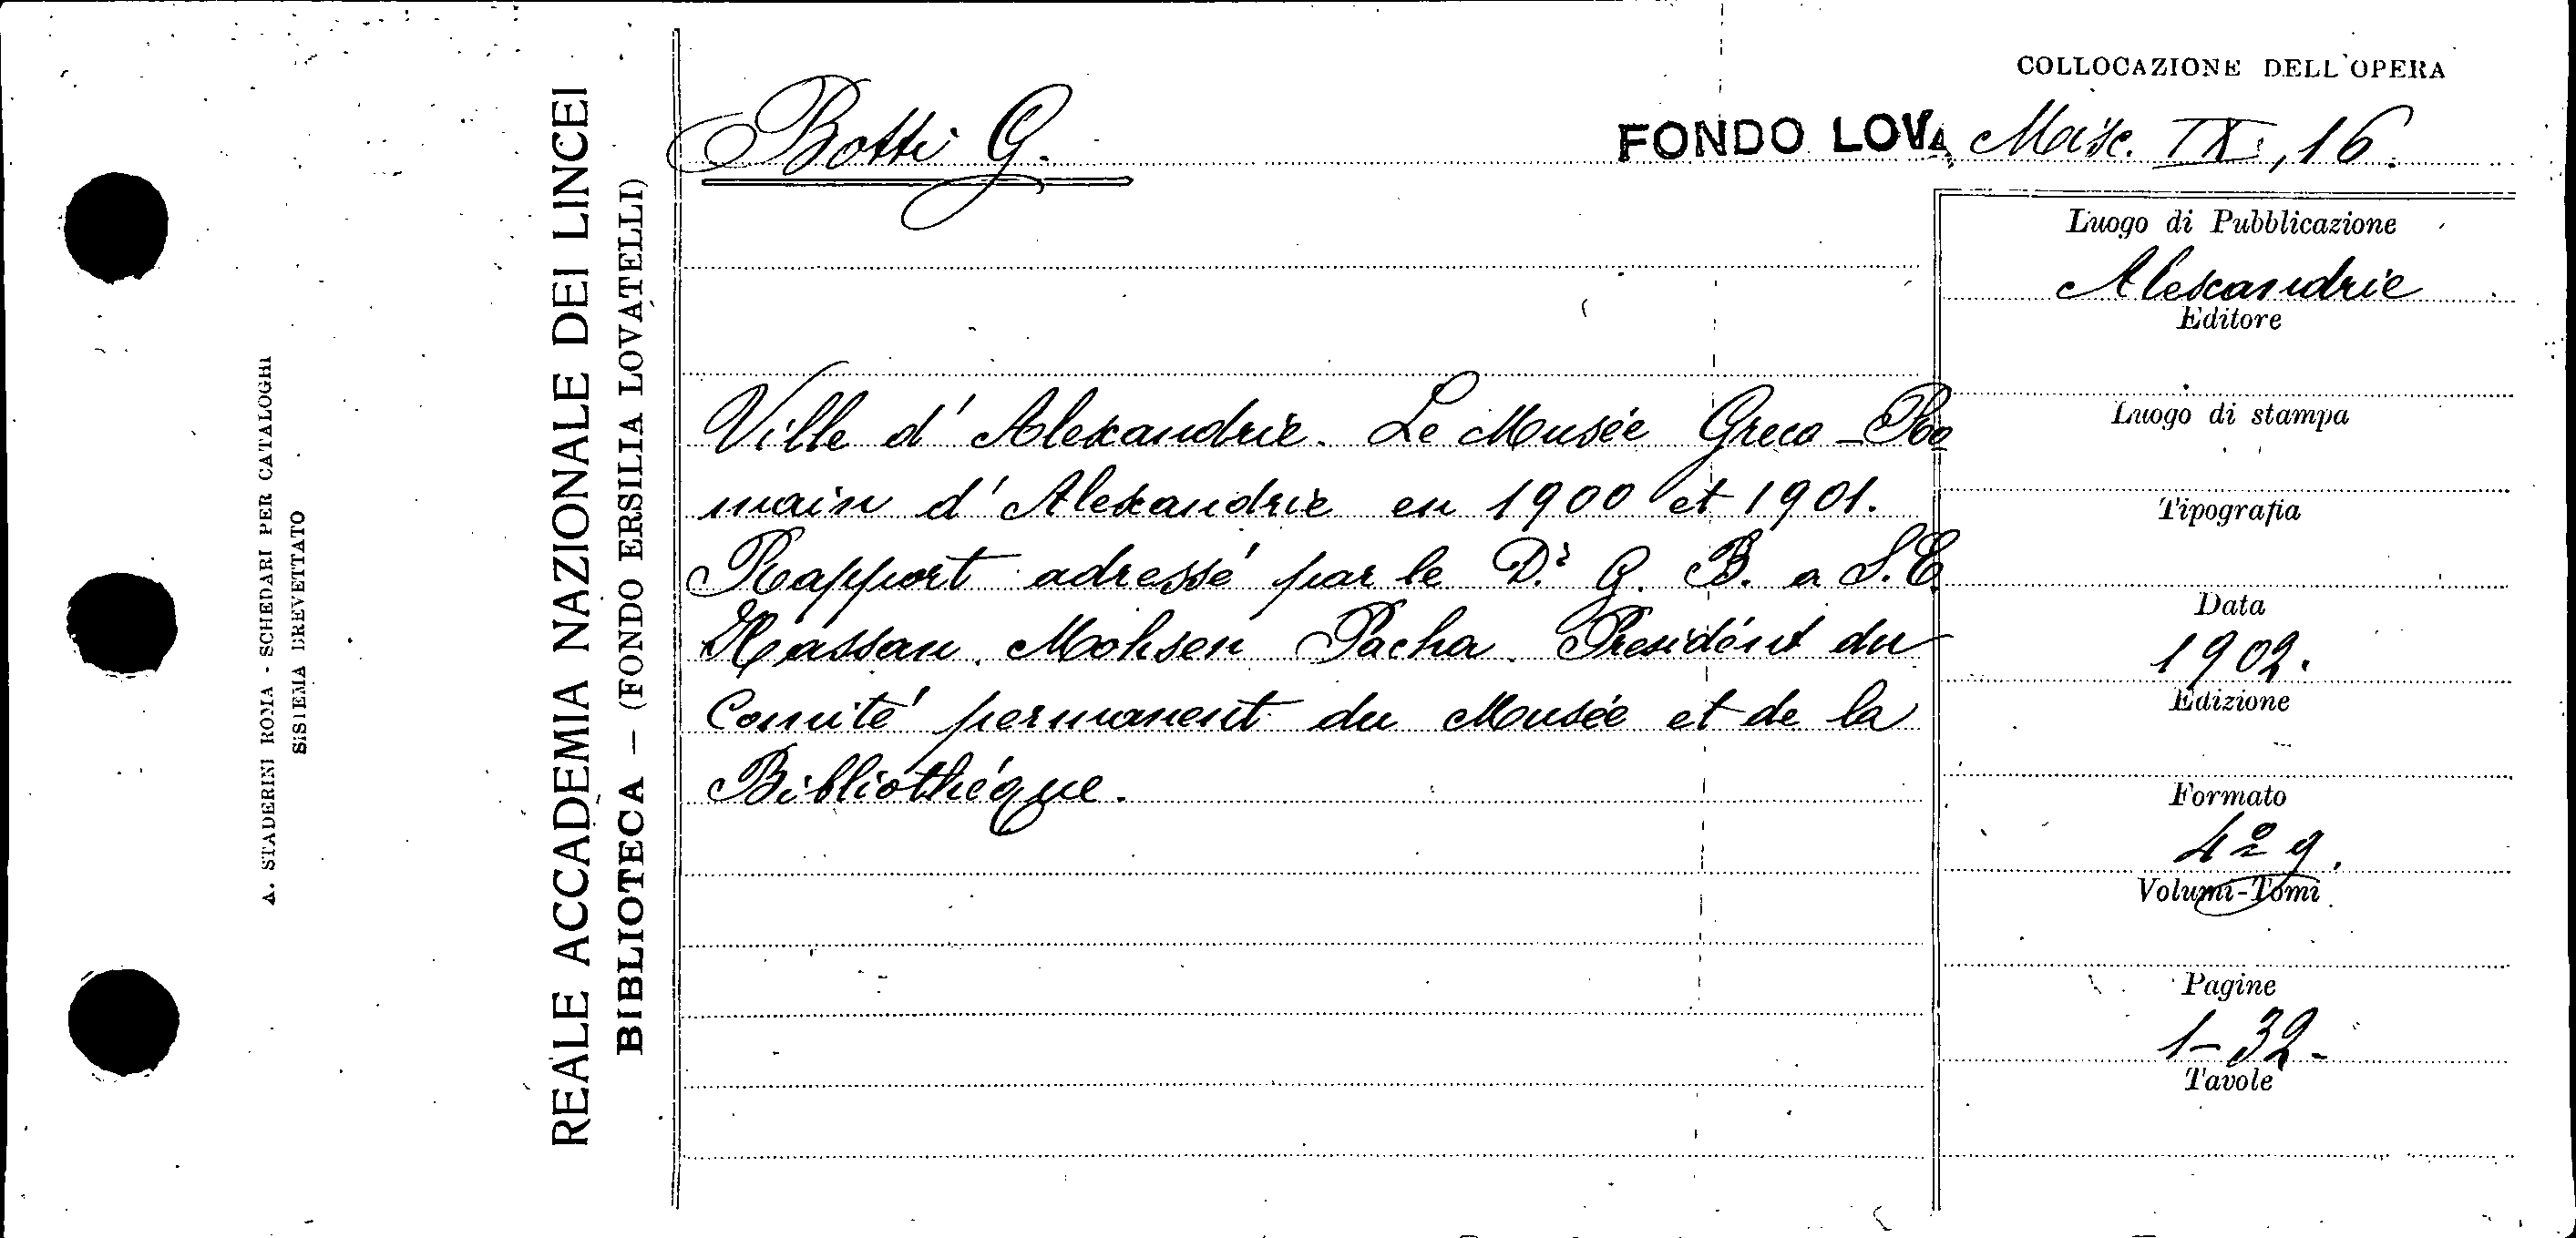 A. STADERINI ROMA - SCHEDARI PER CATALOGHI
SISTEMA BREVETTATO
REALE ACCADEMIA NAZIONALE DEI LINCEI
BIBLIOTECA — (FONDO ERSILIA LOVATELLI)
COLLOCAZIONE DELL'OPERA
Botti G.
FONDO LOVA Misc. IX, 16.
Ville d' Alexandrie. Le Musée Greco-Ro
main d' Alexandrie en 1900 et 1901.
Rapport adressé par le D.r G. B. a S.E.
Hassan Mohsen Pacha President du
Comité permanent du Musée et de la
Bibliothéque.
Luogo di Pubblicazione
Alexandrie
Editore
Luogo di stampa
Tipografia
Data
1902.
Edizione
Formato
4º g.
Volumi-Tomi
Pagine
1-32-
Tavole